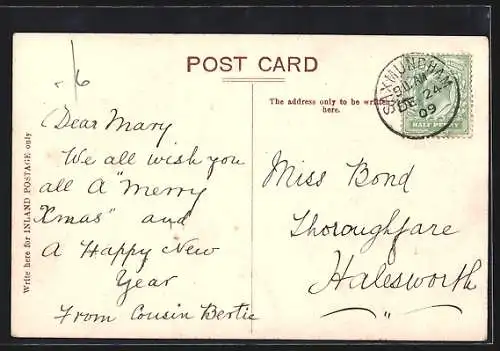 POST CARD
The address only to be written
here.
Write here for INLAND POSTAGE only
SAXMUNDHAM
DE 24
09
HALF PENNY
Dear Mary
We all wish you
all A "Merry
Xmas" and
A Happy New
Year
From Cousin Bertie
Miss Bond
Thoroughfare
Halesworth